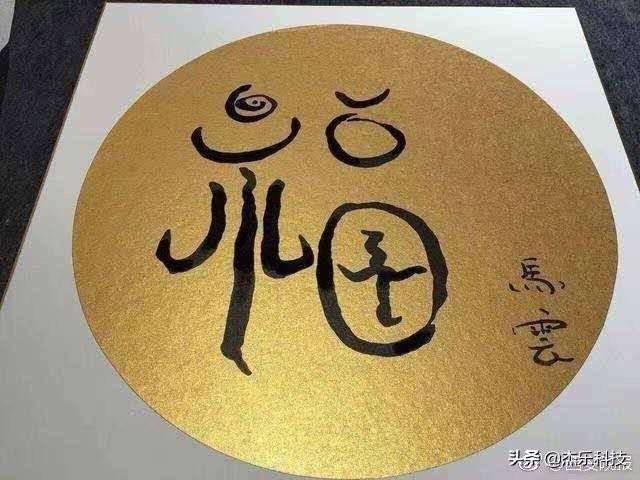 福
馬雲
头条 @杰乐科技